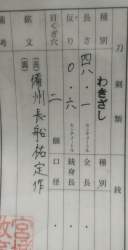 刀剣類 銃
種別 わきざし 種別
長さ 四八・一 センチメートル 全長
反り 〇・六 センチメートル 銃身長
目くぎ穴 二 個 口径
銘文 (表) 備州長船祐定作
(裏)
備考